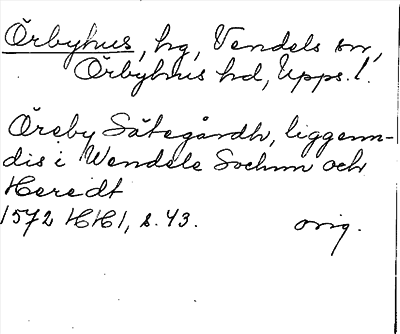 Örbyhus, hg, Vendels sn,
Örbyhus hd, Upps. l.
Öreby Sätegårdh, liggenn-
dis i Wendele Sochnn och
Heredt
1572 HH1, s. 43. orig.